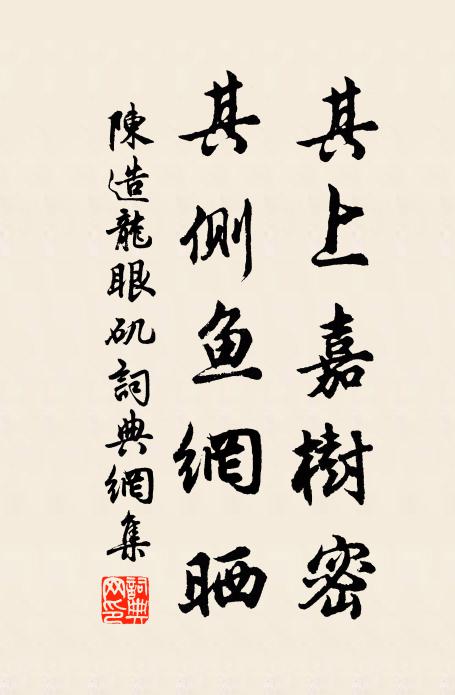 其上嘉樹密
其側鱼網晒
陳造龍眼矶詞典網集
詞典网印